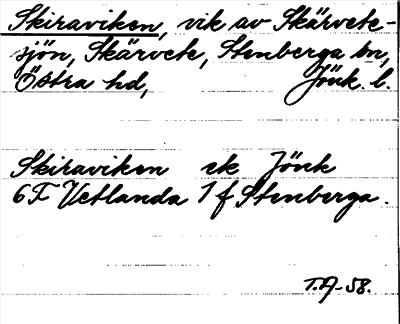 Skiraviken, vik av Skärvete-
sjön, Skärvete, Stenberga sn,
Östra hd, Jönk. l.
Skiraviken ek Jönk
6F Vetlanda 1 f Stenberga.
T.A-58.